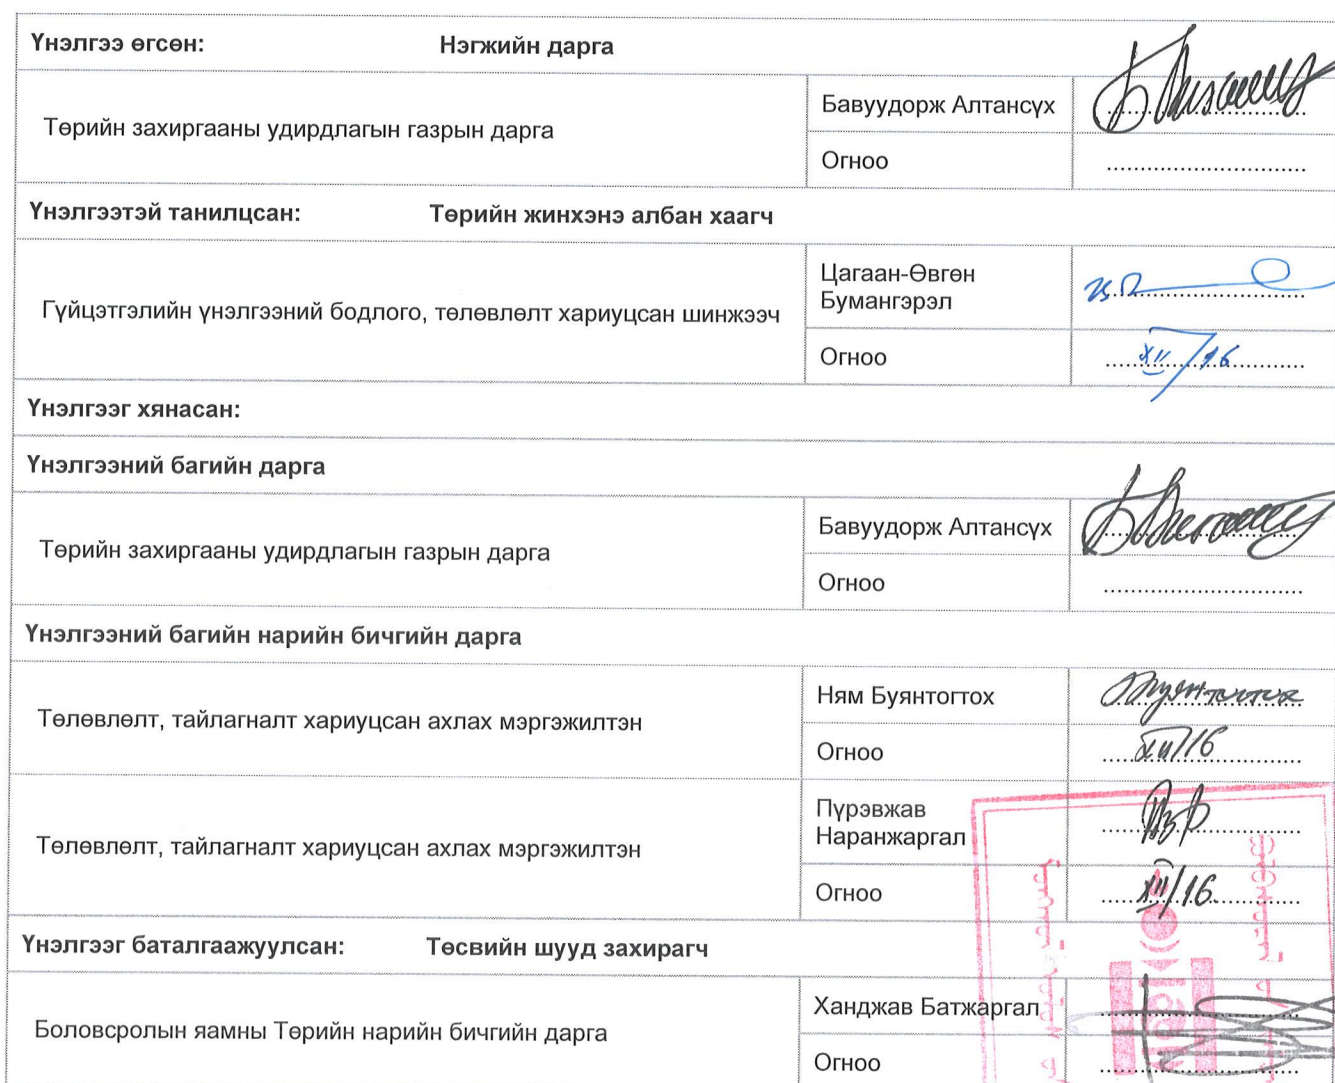 Үнэлгээ өгсөн: Нэгжийн дарга
Төрийн захиргааны удирдлагын газрын дарга
Бавуудорж Алтансүх
Огноо
Үнэлгээтэй танилцсан: Төрийн жинхэнэ албан хаагч
Гүйцэтгэлийн үнэлгээний бодлого, төлөвлөлт хариуцсан шинжээч
Цагаан-Өвгөн
Бумангэрэл
Огноо
XII/16
Үнэлгээг хянасан:
Үнэлгээний багийн дарга
Төрийн захиргааны удирдлагын газрын дарга
Бавуудорж Алтансүх
Огноо
Үнэлгээний багийн нарийн бичгийн дарга
Төлөвлөлт, тайлагналт хариуцсан ахлах мэргэжилтэн
Ням Буянтогтох
Огноо
XII/16
Төлөвлөлт, тайлагналт хариуцсан ахлах мэргэжилтэн
Пүрэвжав
Наранжаргал
Огноо
XII/16
Үнэлгээг баталгаажуулсан: Төсвийн шууд захирагч
Боловсролын яамны Төрийн нарийн бичгийн дарга
Ханджав Батжаргал
Огноо